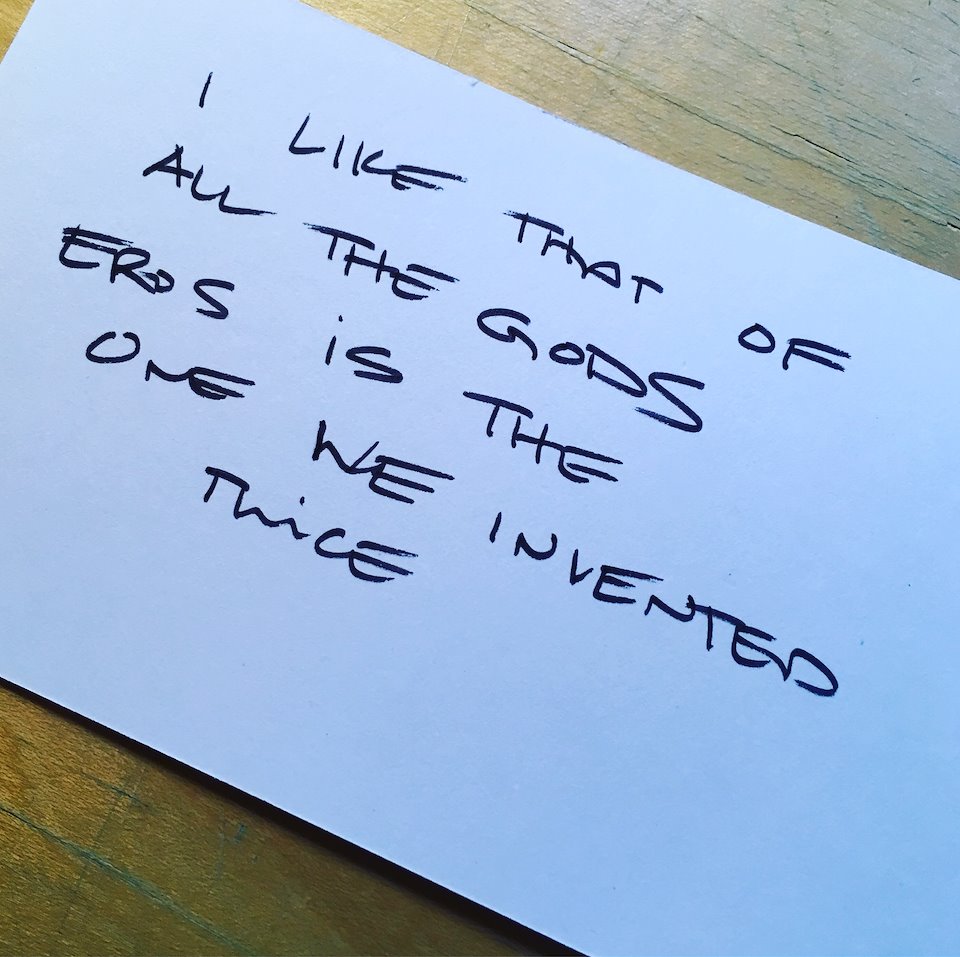 I LIKE THAT OF
ALL THE GODS
EROS iS THE
ONE WE INVENTED
TWiCE